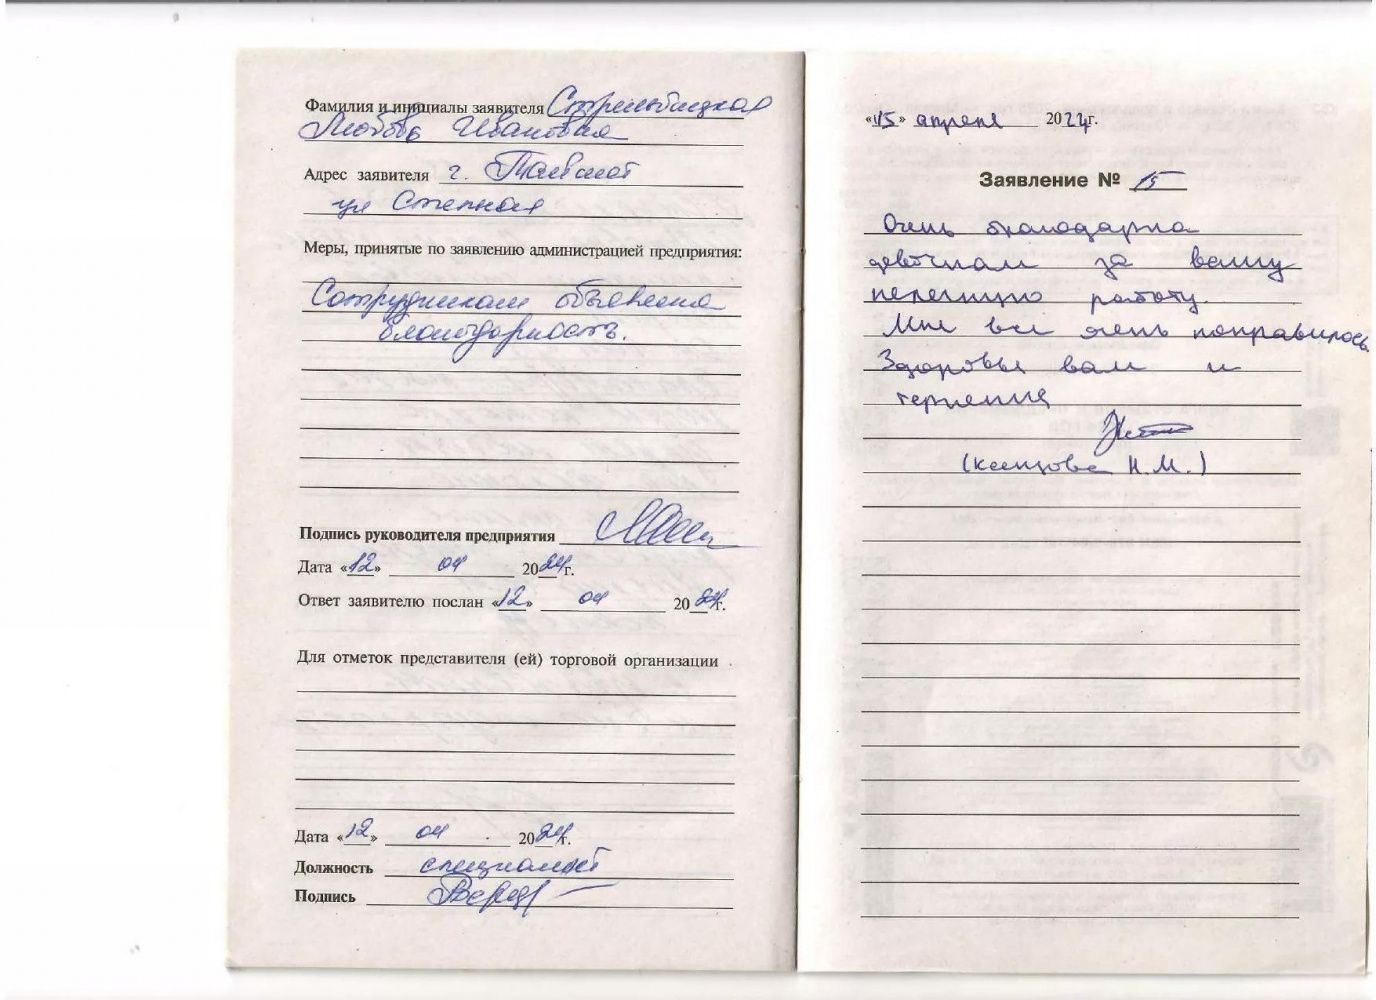 Фамилия и инициалы заявителя Стрельбицкая
Любовь Ивановна
Адрес заявителя г.
ул Степная
Меры, принятые по заявлению администрацией предприятия:
Сотрудникам объявлена
благодарность.
Подпись руководителя предприятия
Дата «12» 04 2024 г.
Ответ заявителю послан «12» 04 2024 г.
Для отметок представителя (ей) торговой организации
Дата «12» 04 2024 г.
Должность специалист
Подпись
«15» апреля 2024г.
Заявление № 15
Очень благодарна
девочкам за вашу
нелегкую работу.
Мне все очень понравилось.
Здоровья вам и
терпения
Н.М.)